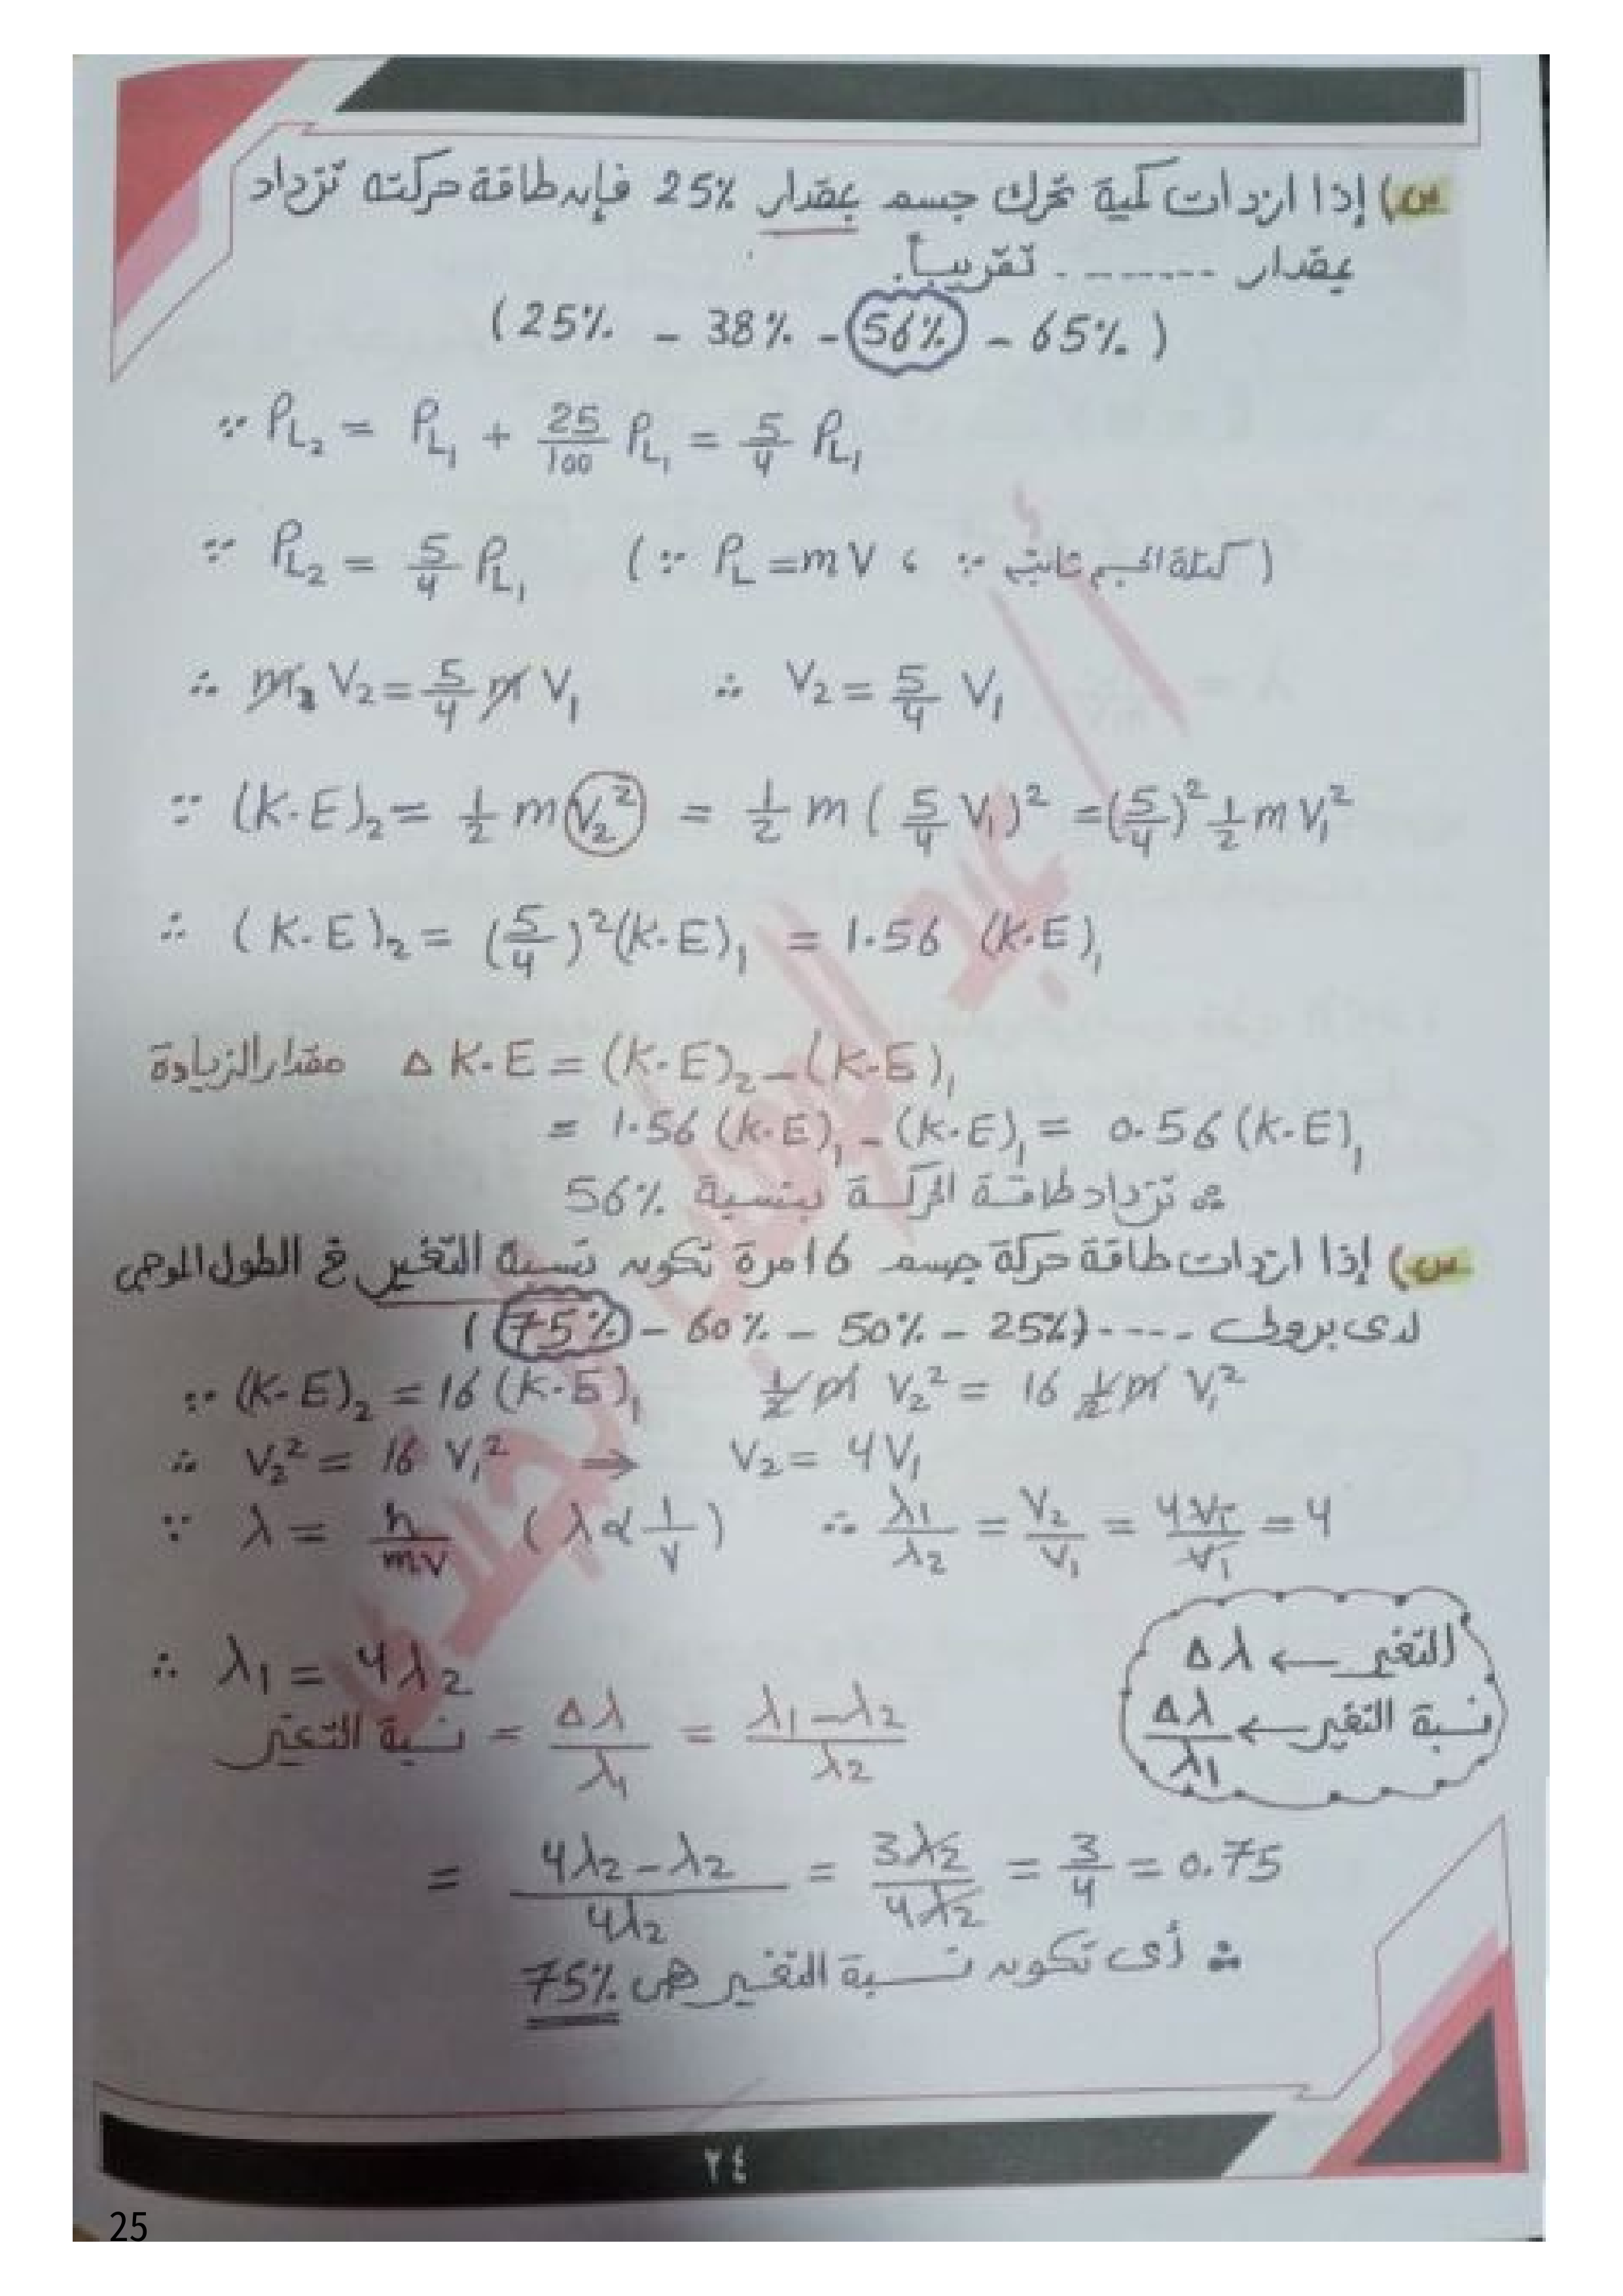 س) إذا ازدات كمية تحرك جسم بمقدار 25% فإنه طاقة حركته تزداد
بمقدار -------- تقريباً.
(25% - 38% - 56% - 65%)
∵ PL₂ = PL₁ + 25/100 PL₁ = 5/4 PL₁
∵ PL₂ = 5/4 PL₁ (∵ PL = mV ، ∵ كتلة الجسم ثابتة)
∴ m₂ V₂ = 5/4 m V₁ ∴ V₂ = 5/4 V₁
∵ (K.E)₂ = 1/2 m V₂² = 1/2 m (5/4 V₁)² = (5/4)² 1/2 m V₁²
∴ (K.E)₂ = (5/4)² (K.E)₁ = 1.56 (K.E)₁
مقدار الزيادة Δ K.E = (K.E)₂ - (K.E)₁
= 1.56 (K.E)₁ - (K.E)₁ = 0.56 (K.E)₁
∴ تزداد طاقة الحركة بنسبة 56%
س) إذا ازدات طاقة حركة جسم 16 مرة تكونه نسبة التغير في الطول الموجى
لدى برولى ---- (25% - 50% - 60% - 75%)
∵ (K.E)₂ = 16 (K.E)₁ 1/2 m V₂² = 16 1/2 m V₁²
∴ V₂² = 16 V₁² → V₂ = 4V₁
∵ λ = h/mv (λ ∝ 1/v) ∴ λ₁/λ₂ = V₂/V₁ = 4V₁/V₁ = 4
∴ λ₁ = 4λ₂
التغير → Δλ
نسبة التغير → Δλ/λ₁
نسبة التغير = Δλ/λ₁ = λ₁-λ₂/λ₂
= 4λ₂-λ₂/4λ₂ = 3λ₂/4λ₂ = 3/4 = 0.75
∴ أى تكونه نسبة التغير هى 75%
٢٤
25